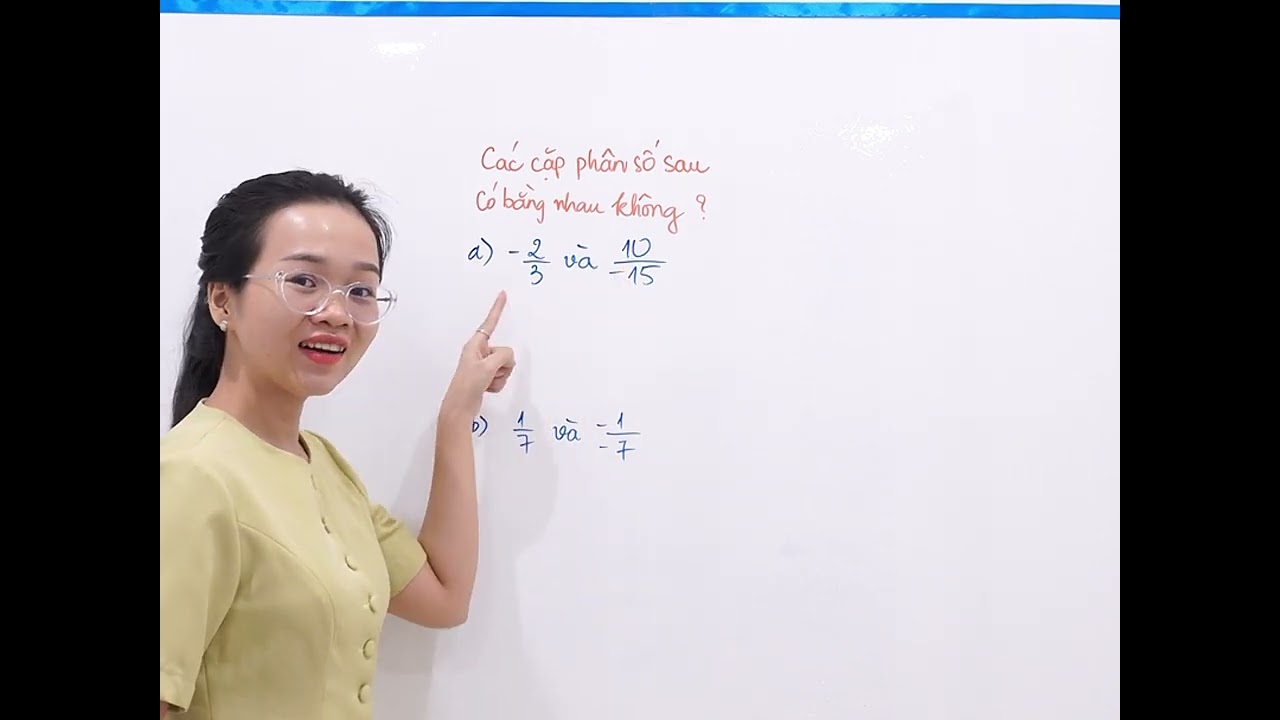 Các cặp phân số sau
có bằng nhau không ?
a) -2/3 và 10/-15
b) 1/7 và -1/-7